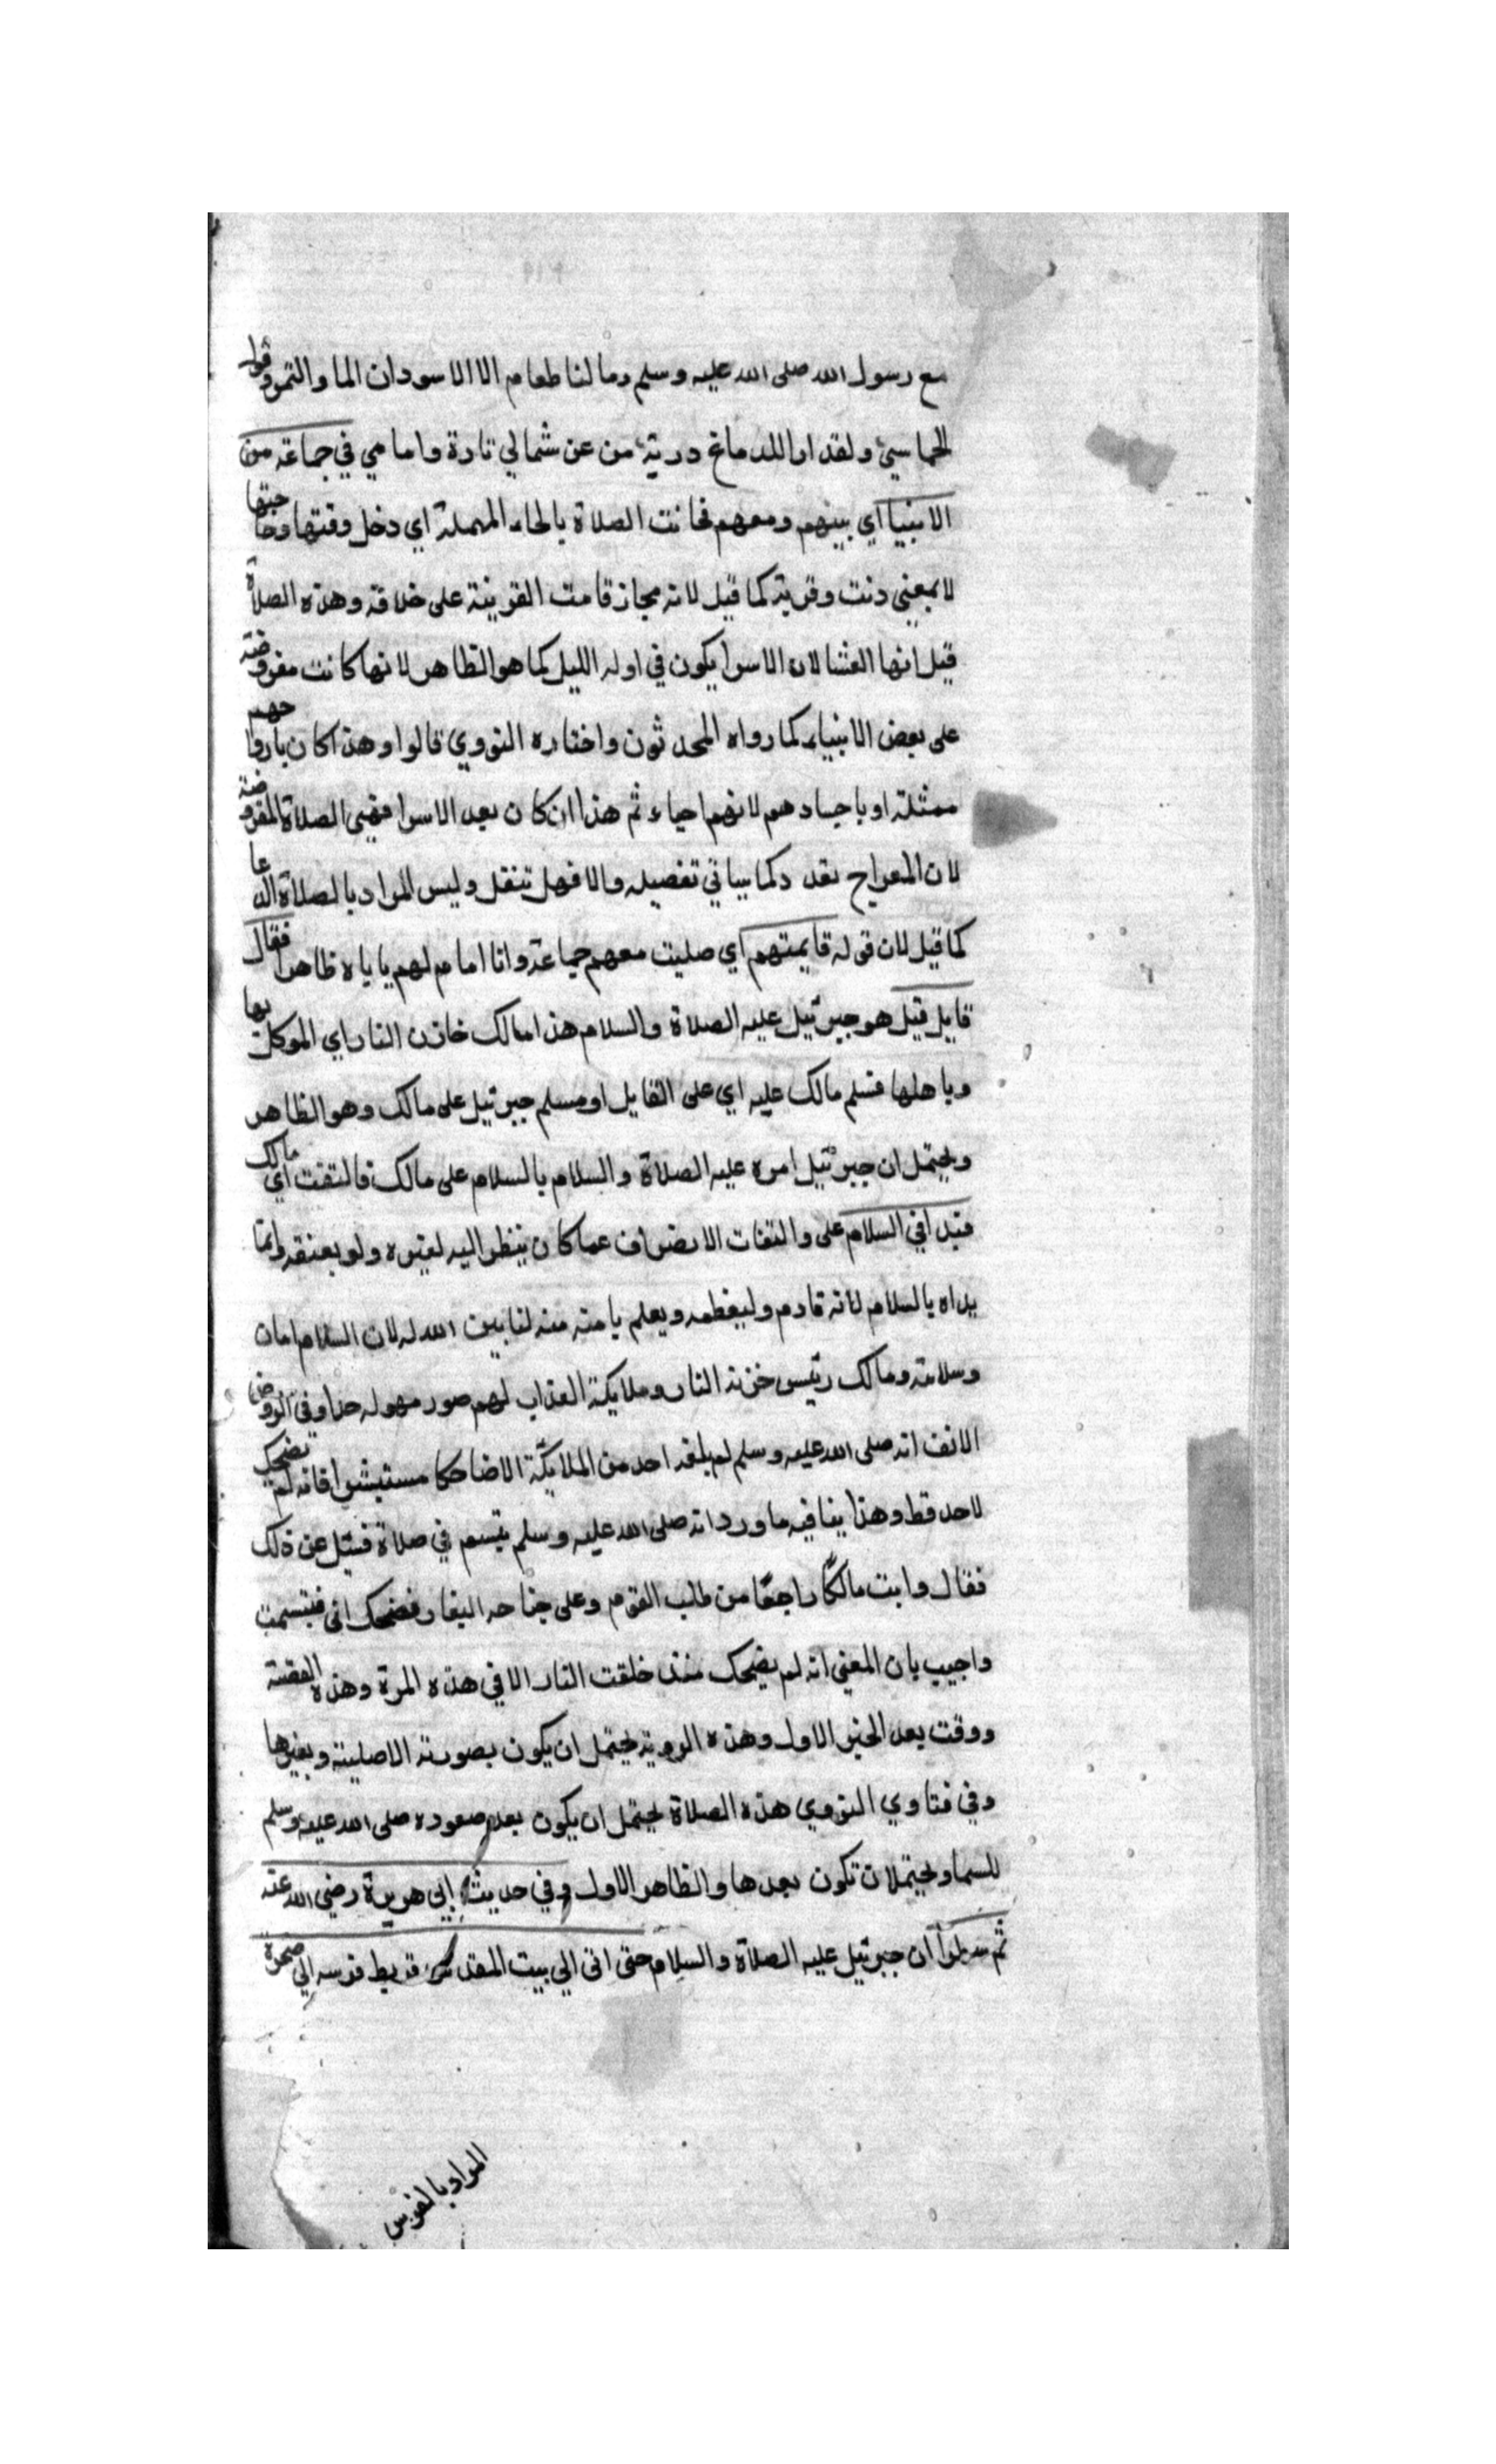 مع رسول الله صلى الله عليه وسلم وما لنا طعام الا الاسودان الما والتمر وقول
الحماسيّ ولقد اراللدماغ دريّة من عن شمالي تارة وامامي في جماعة من
الانبيا اي بينهم ومعهم فحانت الصلاة بالحاء المهملة اي دخل وقتها وحا حينها
لا بمعني دنت وقربة كما قيل لانه مجاز قامت القرينة على خلافه وهذه الصلاة
قيل انها العشا لان الاسرا يكون في اوله الليل كما هو الظاهر لانها كانت مفروضة
على بعض الانبياء كما رواه المحدثون واختاره النووي قالوا وهذا كان بارواحهم
ممثلة او باجسادهم لانهم احياء ثم هذا ان كان بعد الاسرا فهى الصلاة المفروضة
لان المعراج تعدد كما سياتي تفصيله والا فهل تنفل وليس المراد بالصلاة الدعا
كما قيل لان قوله فايمتهم اي صليت معهم جماعة وانا امام لهم ياباه ظاهرا فقال
قايل قيل هو جبرئيل عليه الصلاة والسلام هذا مالك خازن النار اي الموكل بها
وباهلها فسلم مالك عليه اي على القايل او مسلم جبرئيل على مالك وهو الظاهر
ويحتمل ان جبرئيل امره عليه الصلاة والسلام بالسلام على مالك فالتفت اي مالك
فبداني السلام على والتفات الانصراف عما كان ينظر اليه لغيره ولو بعنقه وانما
بداه بالسلام لانه قادم وليعظمه ويعلم بامنه منه لنا بين الله له لان السلام امان
وسلامة ومالك رئيس خزنة النار وملايكة العذاب لهم صور مهوله جدا وفي الروض
الانف انه صلى الله عليه وسلم لم يلقه احد من الملايكة الا ضاحكا مستبشرا فانه لم يضحك
لاحد قط وهذا ينافيه ما ورد انه صلى الله عليه وسلم تبسم في صلاة فسئل عن ذلك
فقال رايت مالكًا راجعًا من طلب القوم وعلى جناحه الغبار فضحك الى فتبسمت
واجيب بان المعني انه لم يضحك منذ خلقت النار الا في هذه المرة وهذه القضية
ووقت بعد الخبر الاول وهذه الروية يحتمل ان يكون بصورته الاصلية وبغيرها
وفي فتاوي النووي هذه الصلاة يحتمل ان يكون بعد صعوده صلى الله عليه وسلم
للسما ويحتمل ان تكون بعدها والظاهر الاول وفي حديث ابي هريرة رضي الله عنه
ثم سار جبرئيل عليه الصلاة والسلام حتى اتى الي بيت المقدس فربط فرسه الي صخرة
المراد بالفرس